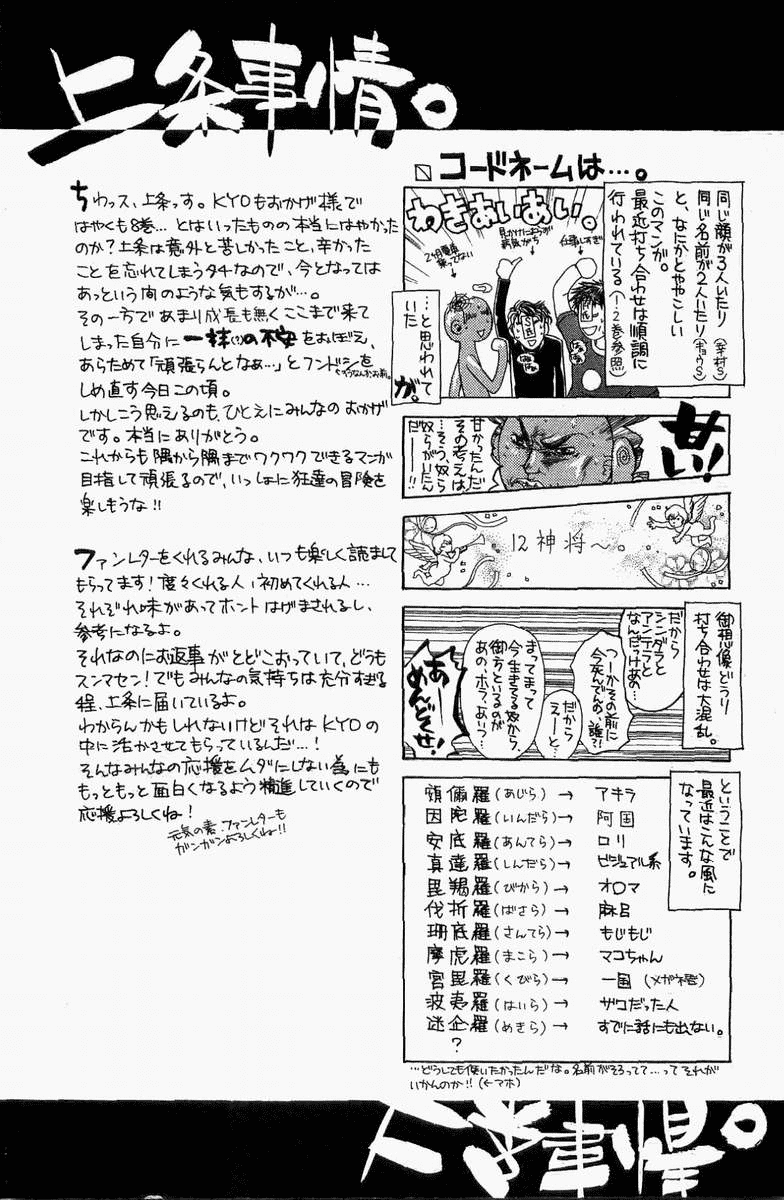 上条事情。
ちわっス、上条っす。KYOもおかげ様で
はやくも8巻…とはいったものの本当にはやかった
のか?上条は意外と苦しかったこと、辛かった
ことを忘れてしまうタチなので、今となっては
あっという間のような気もするが…。
その一方であまり成長も無くここまで来て
しまった自分に一抹(?)の不安をおぼえ、
あらためて「頑張らんとなぁ…」とフンドシを
しめ直す今日この頃。
しかしこう思えるのも、ひとえにみんなのおかげ
です。本当にありがとう。
これからも隅から隅までワクワクできるマンガ
目指して頑張るので、いっしょに狂達の冒険を
楽しもうな!!
ファンレターをくれるみんな、いつも楽しく読ませて
もらってます!度々くれる人、初めてくれる人…
それぞれ味があってホントはげまされるし、
参考になるよ。
それなのにお返事がとどこおっていて、どうも
スンマセン!でもみんなの気持ちは充分すぎる
程、上条に届いているよ。
わからんかもしれないけどそれはKYOの
中に活かさせてもらっているんだ…!
そんなみんなの応援をムダにしない為にも
もっともっと面白くなるよう精進していくので
応援よろしくね!
元気の素・ファンレターも
ガンガンよろしくね!!
コードネームは…。
同じ顔が3人いたり(幸村s)
同じ名前が2人いたり(キョウs)
と、なにかとややこしい
このマンガ。
最近打ち合わせは順調に
行われている(1・2巻参照)
わきあいあい。
仕事しすぎ
見かけによらず
病気がち
2ヶ月電車
乗ってない
…と思われて
いた
が。
甘い!!
甘かったんだ
その考えは、
…そう、奴ら
奴らがいたん
だー!!
12神将〜。
御想像どうり
打ち合わせは大混乱。
だから
シンダラと
アンテラと
なんだっけあ…
つーかその前に
今死んでるの、誰?!
だから
えーと…
まってまって
今生きてる奴から、
御方といるのが
あの、ホラ、あいつ…
あーめんどくせ!
ということで
最近はこんな風に
なっています。
頞儞羅(あじら)→ アキラ
因陀羅(いんだら)→ 阿国
安底羅(あんてら)→ ロリ
真達羅(しんだら)→ ビジュアル系
毘羯羅(びから)→ オロマ
伐折羅(ばさら)→ 麻呂
珊底羅(さんてら)→ もじもじ
摩虎羅(まこら)→ マコちゃん
宮毘羅(くびら)→ 一国(メガネ君)
波夷羅(はいら)→ ザコだった人
迷企羅(めきら)→ すでに話にも出ない。
?
…どうしても使いたかったんだな。名前がそろってて…ってそれが
いかんのか!!(←アホ)
上条事情。